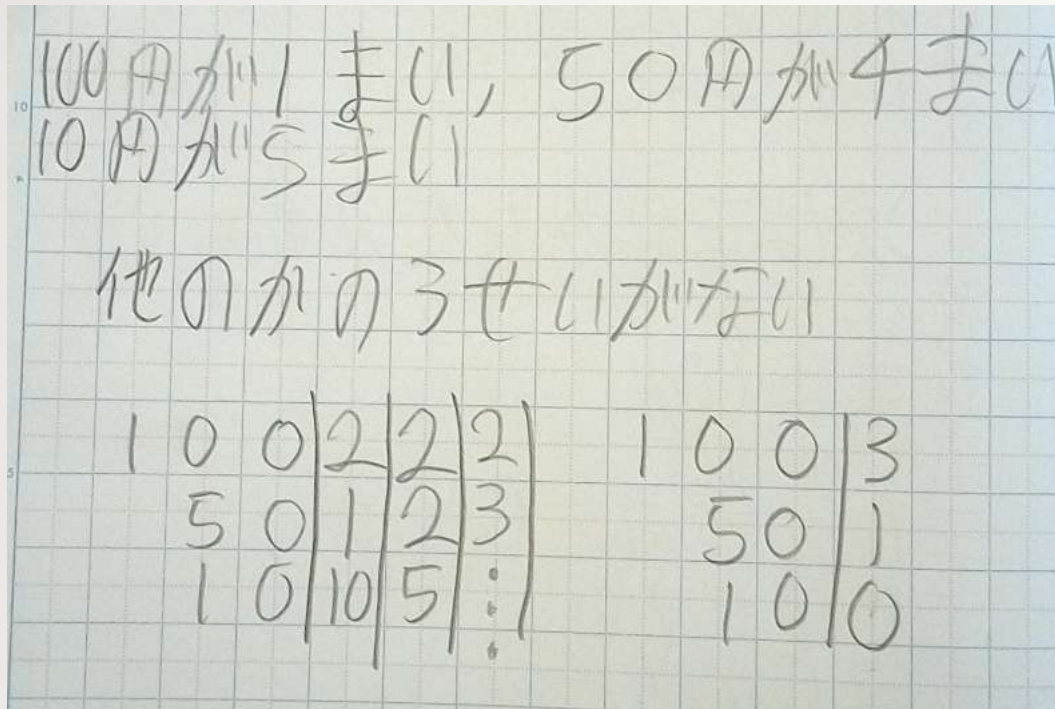 100円が1まい, 50円が4まい
10円が5まい
他のかのうせいがない
100 2 2 2
50 1 2 3
10 10 5 ⋮
100 3
50 1
10 0